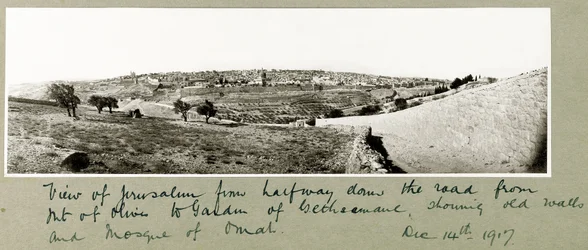 View of Jerusalem from halfway down the road from
Mt of Olives to Garden of Gethsemane, showing old walls
and Mosque of Omar. Dec 14th 1917